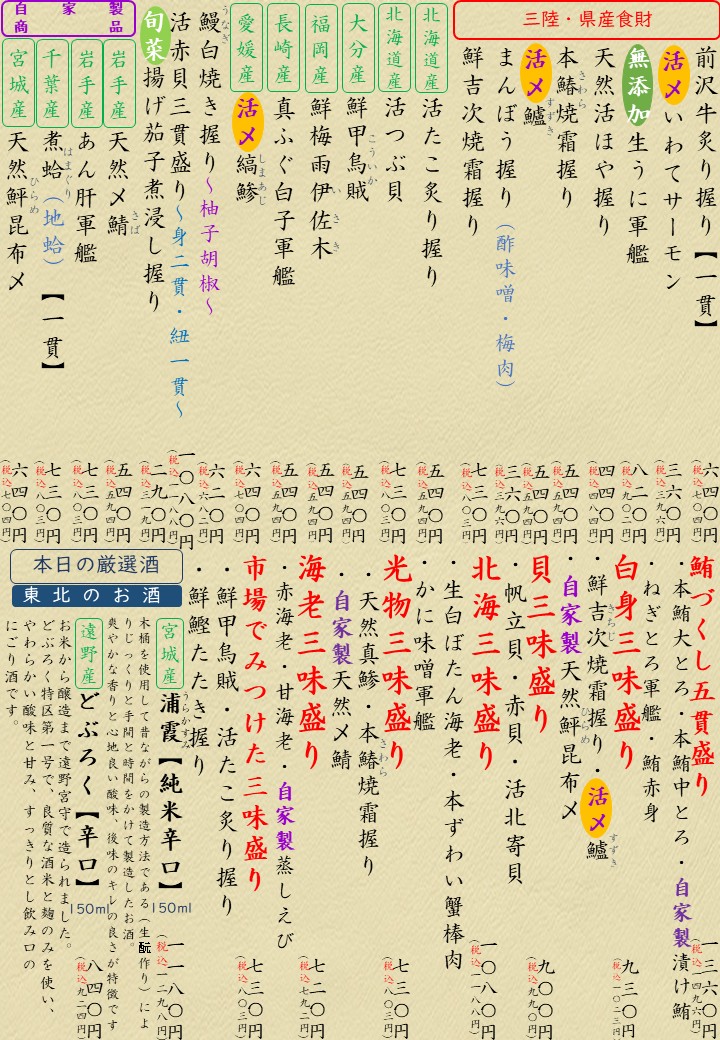 三陸・県産食財
前沢牛炙り握り【一貫】 六四〇円(税込七〇四円)
活〆いわてサーモン 三六〇円(税込三九六円)
無添加生うに軍艦 八二〇円(税込九〇二円)
天然活ほや握り 四四〇円(税込四八四円)
本鰆焼霜握り 五四〇円(税込五九四円)
さわら
活〆鱸 五四〇円(税込五九四円)
すずき
まんぼう握り(酢味噌・梅肉) 三六〇円(税込三九六円)
鮮吉次焼霜握り 七三〇円(税込八〇三円)
北海道産 活たこ炙り握り 五四〇円(税込五九四円)
北海道産 活つぶ貝 七三〇円(税込八〇三円)
大分産 鮮甲烏賊 五四〇円(税込五九四円)
こういか
福岡産 鮮梅雨伊佐木 五四〇円(税込五九四円)
いさき
長崎産 真ふぐ白子軍艦 五四〇円(税込五九四円)
愛媛産 活〆縞鯵 六四〇円(税込七〇四円)
しまあじ
鰻白焼き握り〜柚子胡椒〜 六二〇円(税込六八二円)
うなぎ
活赤貝三貫盛り〜身二貫・紐一貫〜 一〇八〇円(税込一一八八円)
旬菜揚げ茄子煮浸し握り 二九〇円(税込三一九円)
自家製商品
岩手産 天然〆鯖 五四〇円(税込五九四円)
さば
岩手産 あん肝軍艦 七三〇円(税込八〇三円)
千葉産 煮蛤(地蛤)【一貫】 七三〇円(税込八〇三円)
はまぐり
宮城産 天然鮃昆布〆 六四〇円(税込七〇四円)
ひらめ
鮪づくし五貫盛り 一三六〇円(税込一四九六円)
・本鮪大とろ・本鮪中とろ・自家製漬け鮪
・ねぎとろ軍艦・鮪赤身
白身三味盛り 九三〇円(税込一〇二三円)
・鮮吉次焼霜握り・活〆鱸
きちじ
すずき
・自家製天然鮃昆布〆
ひらめ
貝三味盛り 九〇〇円(税込九九〇円)
・帆立貝・赤貝・活北寄貝
北海三味盛り 一〇八〇円(税込一一八八円)
・生白ぼたん海老・本ずわい蟹棒肉
・かに味噌軍艦
光物三味盛り 七三〇円(税込八〇三円)
・天然真鯵・本鰆焼霜握り
さわら
・自家製天然〆鯖
海老三味盛り 七二〇円(税込七九二円)
・赤海老・甘海老・自家製蒸しえび
市場でみつけた三味盛り 七三〇円(税込八〇三円)
・鮮甲烏賊・活たこ炙り握り
・鮮鰹たたき握り
本日の厳選酒
東北のお酒
宮城産 浦霞【純米辛口】 150ml 一一八〇円(税込一二九八円)
うらかすみ
木桶を使用して昔ながらの製造方法である(生酛作り)によ
りじっくりと手間と時間をかけて製造したお酒。
爽やかな香りと心地良い酸味、後味のキレの良さが特徴です
遠野産 どぶろく【辛口】 150ml 八四〇円(税込九二四円)
お米から醸造まで遠野宮守で造られました。
どぶろく特区第一号で、良質な酒米と麹のみを使い、
やわらかい酸味と甘み、すっきりとし飲み口の
にごり酒です。